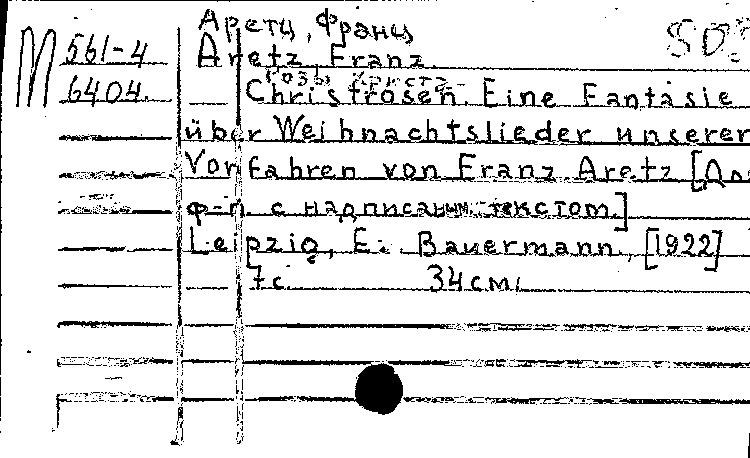 Аретц, Франц
М 561-4 Aretz, Franz.
Розы Христа
6404. Christrosen. Eine Fantasie
über Weihnachtslieder unserer
Vorfahren von Franz Aretz [Для
ф-п. с надписаным текстом.]
Leipzig, E. Bauermann, [1922]
7 с. 34 см.